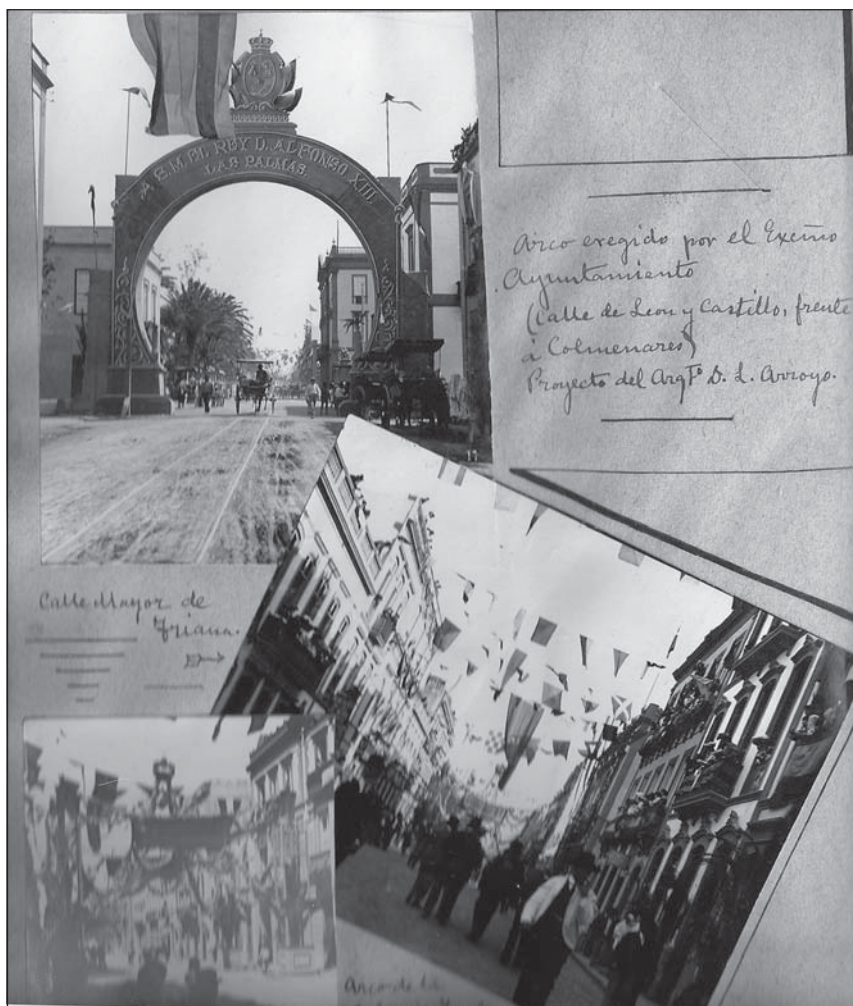 A S.M. EL REY D. ALFONSO XIII
LAS PALMAS.
Arco eregido por el Excmo
Ayuntamiento
(Calle de Leon y Castillo, frente
á Colmenares)
Proyecto del Arqto D. L. Arroyo.
Calle Mayor de
Triana.
Arco de la